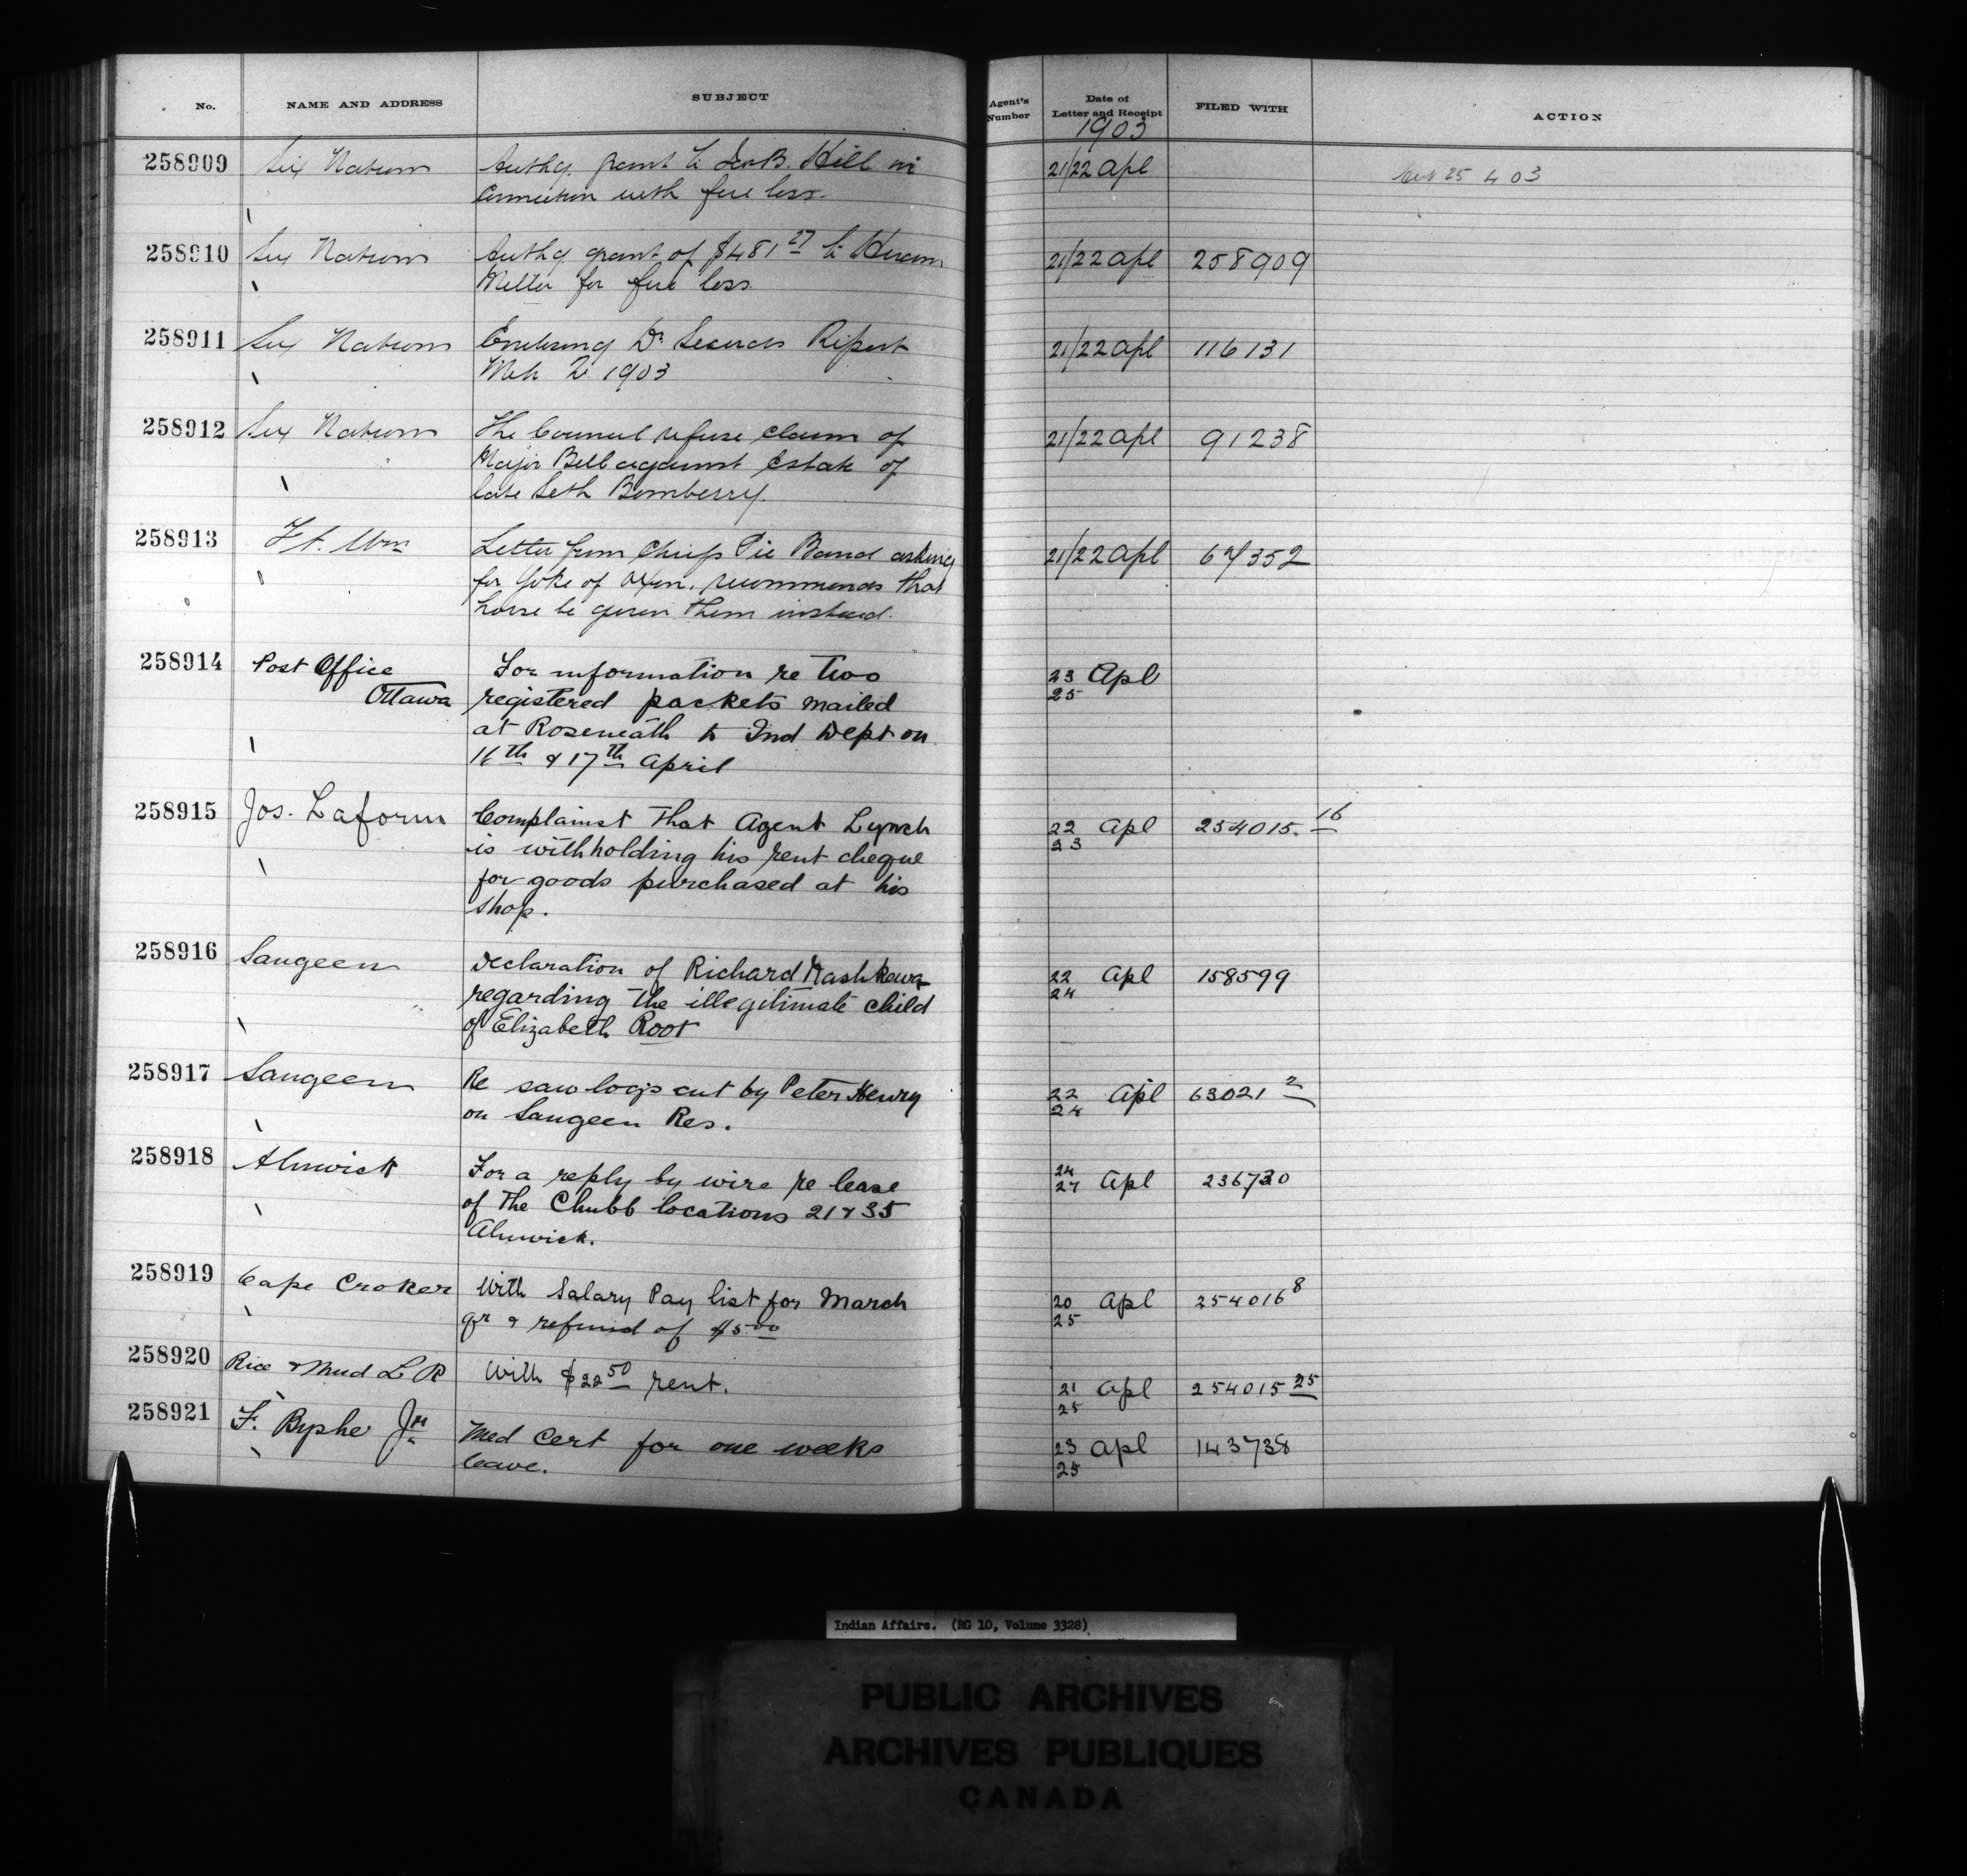 No. NAME AND ADDRESS SUBJECT Agent's Number Date of Letter and Receipt FILED WITH ACTION
1903
258909 Six Nations Authy. grant to B. Hill in 21/22 Apl
connection with fire loss.
258910 Six Nations Authy grant of $481 27 to Hiram 21/22 Apl 258909
Miller for fire loss
258911 Six Nations Enclosing Dr Secords Report 21/22 Apl 116131
Mch 1903
258912 Six Nations The Council refuse claim of 21/22 Apl 91238
Major Bell against Estate of
late Seth Bomberry.
258913 Ft. Wm Letter from Chief Pic Band asking 21/22 Apl
for Yoke of Oxen, recommends that
horse be given them instead.
258914 Post Office For information re Two 23 Apl
Ottawa registered packets mailed 25
at Roseneath to Ind Dept on
16th & 17th April
258915 Jos. Laform Complainst that Agent Lynch 22 Apl 254015. 16
is withholding his rent cheque 23
for goods purchased at his
shop.
258916 Saugeen Declaration of Richard Mashkewa 22 Apl 158599
regarding the illegitimate child 24
of Elizabeth Root
258917 Saugeen Re saw logs cut by Peter Henry 22 Apl 63021 2
on Saugeen Res. 24
258918 Alnwick For a reply by wire re lease 24 Apl 236730
of the Chubb locations 21 & 35 27
Alnwick.
258919 Cape Croker With Salary Pay list for March 20 Apl 254016 8
qr & refund of $5 00 25
258920 Rice & Mud L R With $22 50 rent. 21 Apl 254015 25
25
258921 F. Byshe Jr Med Cert for one weeks 23 Apl 143738
leave. 25
Indian Affairs. (RG 10, Volume 3328)
PUBLIC ARCHIVES
ARCHIVES PUBLIQUES
CANADA